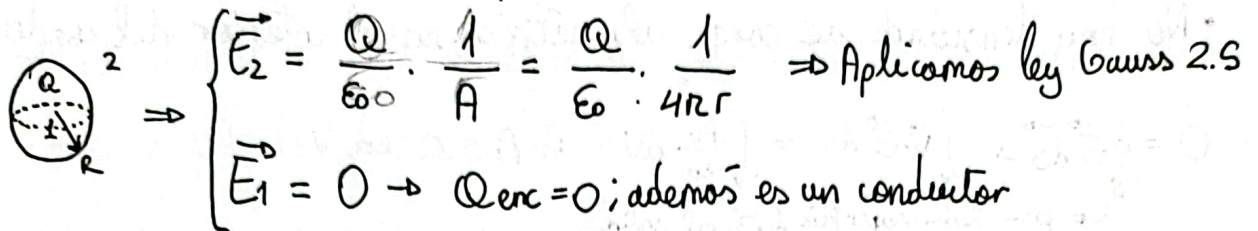 E₂ = Q/ε₀₀ · 1/A = Q/ε₀ · 1/4πr ⇒ Aplicamos ley Gauss 2.S
Q 2 1 R ⇒
E₁ = 0 → Qenc = 0; además es un conductor